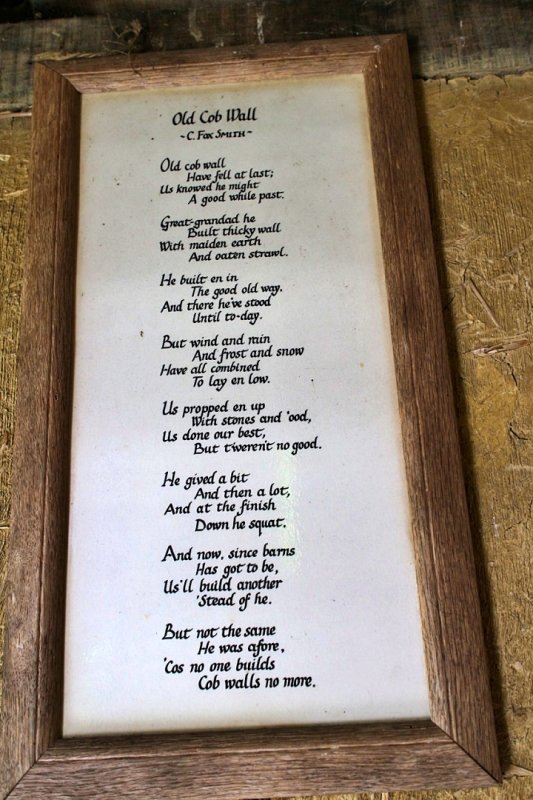 Old Cob Wall
~C. Fox Smith~
Old cob wall
Have fell at last;
Us knowed he might
A good while past.
Great-grandad he
Built thicky wall
With maiden earth
And oaten strawl.
He built en in
The good old way,
And there he've stood
Until to-day.
But wind and rain
And frost and snow
Have all combined
To lay en low.
Us propped en up
With stones and 'ood,
Us done our best,
But t'weren't no good.
He gived a bit
And then a lot,
And at the finish
Down he squat.
And now, since barns
Has got to be,
Us'll build another
'Stead of he.
But not the same
He was afore,
'Cos no one builds
Cob walls no more.